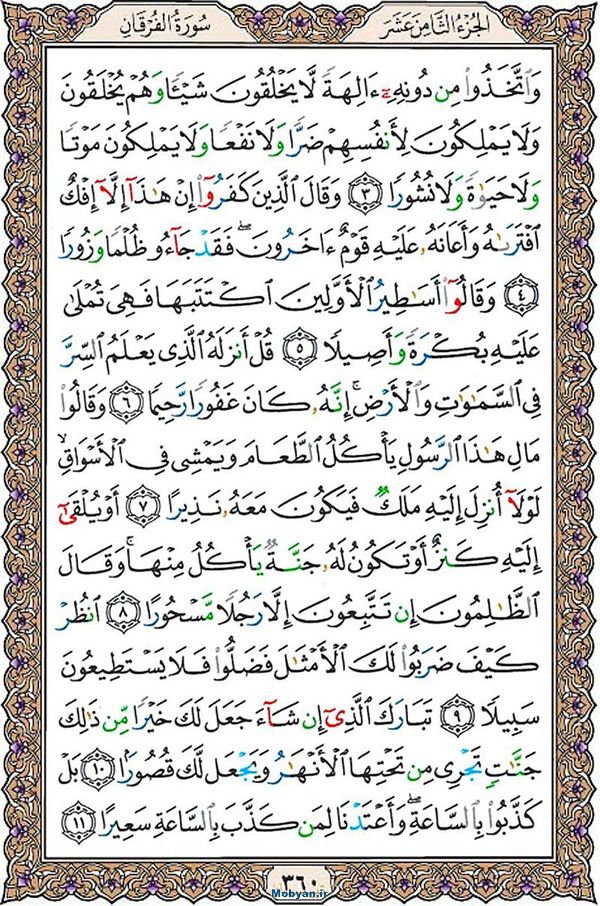 الجزء الثامن عشر سورة الفرقان
وَٱتَّخَذُوا۟ مِن دُونِهِۦٓ ءَالِهَةً لَّا يَخْلُقُونَ شَيْـًٔا وَهُمْ يُخْلَقُونَ
وَلَا يَمْلِكُونَ لِأَنفُسِهِمْ ضَرًّا وَلَا نَفْعًا وَلَا يَمْلِكُونَ مَوْتًا
وَلَا حَيَوٰةً وَلَا نُشُورًا ٣ وَقَالَ ٱلَّذِينَ كَفَرُوٓا۟ إِنْ هَـٰذَآ إِلَّآ إِفْكٌ
ٱفْتَرَىٰهُ وَأَعَانَهُۥ عَلَيْهِ قَوْمٌ ءَاخَرُونَ ۖ فَقَدْ جَآءُو ظُلْمًا وَزُورًا
٤ وَقَالُوٓا۟ أَسَـٰطِيرُ ٱلْأَوَّلِينَ ٱكْتَتَبَهَا فَهِىَ تُمْلَىٰ
عَلَيْهِ بُكْرَةً وَأَصِيلًا ٥ قُلْ أَنزَلَهُ ٱلَّذِى يَعْلَمُ ٱلسِّرَّ
فِى ٱلسَّمَـٰوَٰتِ وَٱلْأَرْضِ ۚ إِنَّهُۥ كَانَ غَفُورًا رَّحِيمًا ٦ وَقَالُوا۟
مَالِ هَـٰذَا ٱلرَّسُولِ يَأْكُلُ ٱلطَّعَامَ وَيَمْشِى فِى ٱلْأَسْوَاقِ ۙ
لَوْلَآ أُنزِلَ إِلَيْهِ مَلَكٌ فَيَكُونَ مَعَهُۥ نَذِيرًا ٧ أَوْ يُلْقَىٰٓ
إِلَيْهِ كَنزٌ أَوْ تَكُونُ لَهُۥ جَنَّةٌ يَأْكُلُ مِنْهَا ۚ وَقَالَ
ٱلظَّـٰلِمُونَ إِن تَتَّبِعُونَ إِلَّا رَجُلًا مَّسْحُورًا ٨ ٱنظُرْ
كَيْفَ ضَرَبُوا۟ لَكَ ٱلْأَمْثَـٰلَ فَضَلُّوا۟ فَلَا يَسْتَطِيعُونَ
سَبِيلًا ٩ تَبَارَكَ ٱلَّذِىٓ إِن شَآءَ جَعَلَ لَكَ خَيْرًا مِّن ذَٰلِكَ
جَنَّـٰتٍ تَجْرِى مِن تَحْتِهَا ٱلْأَنْهَـٰرُ وَيَجْعَل لَّكَ قُصُورًۢا ١٠ بَلْ
كَذَّبُوا۟ بِٱلسَّاعَةِ ۖ وَأَعْتَدْنَا لِمَن كَذَّبَ بِٱلسَّاعَةِ سَعِيرًا ١١
٣٦٠
Mobyan.ir